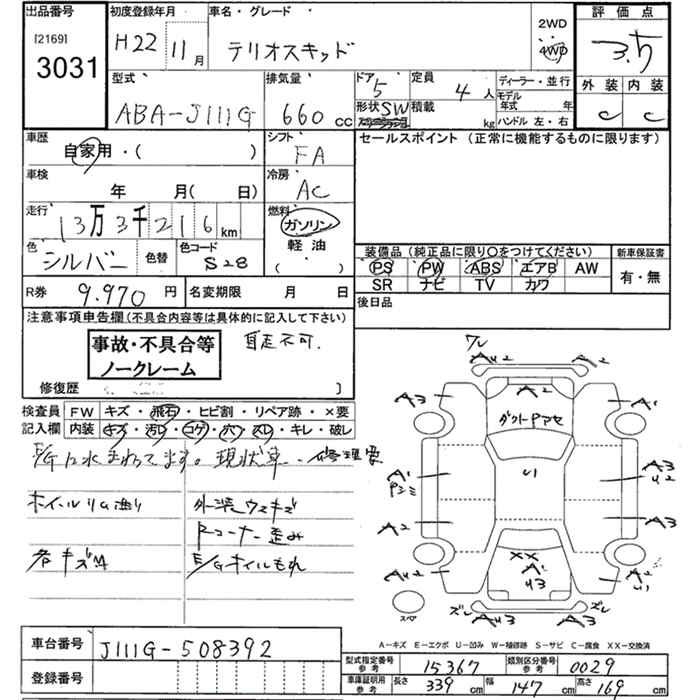 出品番号 初度登録年月 車名・グレード 2WD 評価点
[2169] H22 11月 テリオスキッド 4WD 3.5
3031 外装 内装
型式 排気量 ドア 定員 ディーラー・並行
ABA-J111G 660 cc 5 4人 モデル年式 年 C C
形状 SW 積載 kg ハンドル 左・右
車歴 シフト セールスポイント (正常に機能するものに限ります)
自家用・( ) FA
車検 冷房
年 月( 日) AC
走行 燃料
13万3千216km ガソリン
色 色替 色コード 軽油 装備品 (純正品に限り○をつけてください) 新車保証書
シルバー S28 ( ) PS PW ABS エアB AW 有・無
SR ナビ TV カワ
R券 9.970円 名変期限 月 日 後日品
注意事項申告欄(不具合内容等は具体的に記入して下さい)
事故・不具合等 自走不可.
ノークレーム
修復歴 〕
検査員 FW キズ・飛石・ヒビ割・リペア跡・×要
記入欄 内装 キズ・汚レ・コゲ・穴・スレ・キレ・破レ
E/Gに水まわってます。現状車. 修理要
ホイールリム渡り 外装ウスキズ
Rコーナー歪み
各キズM E/Gオイルもれ
ワレ
AU2 AU2
A3 A2 A1
ダクトPアセ
A1 U1 A3
Pシミ U2
A2 A3
XX
AU2 A1 A2
U3 U1
ズレ ズレ
スペア AU3 AU3
A-キズ E-エクボ U-凹み W-補修跡 S-サビ C-腐食 XX-交換済
車台番号 J111G-508392
型式指定番号 参考 15367 類別区分番号 参考 0029
登録番号 車庫証明用 参考 長さ 339cm 幅 147cm 高さ 169cm